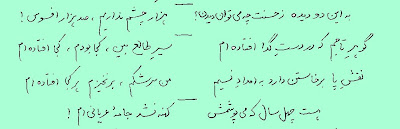 به این دو دیده ز حسنت چه می توان دیدن؟ هزار چشم نداریم ، صد هزار افسوس !
گوهر تاجم که در دست گدا افتاده ام سیر طالع بین ، کجا بودم ، کجا افتاده ام
نقش پا برخاستن دارد به امداد نسیم من سرشکم ، برنخیزم هر کجا افتاده ام
هست چهل سال که می پوشمش کهنه نشد جامهٔ عریانی ام !